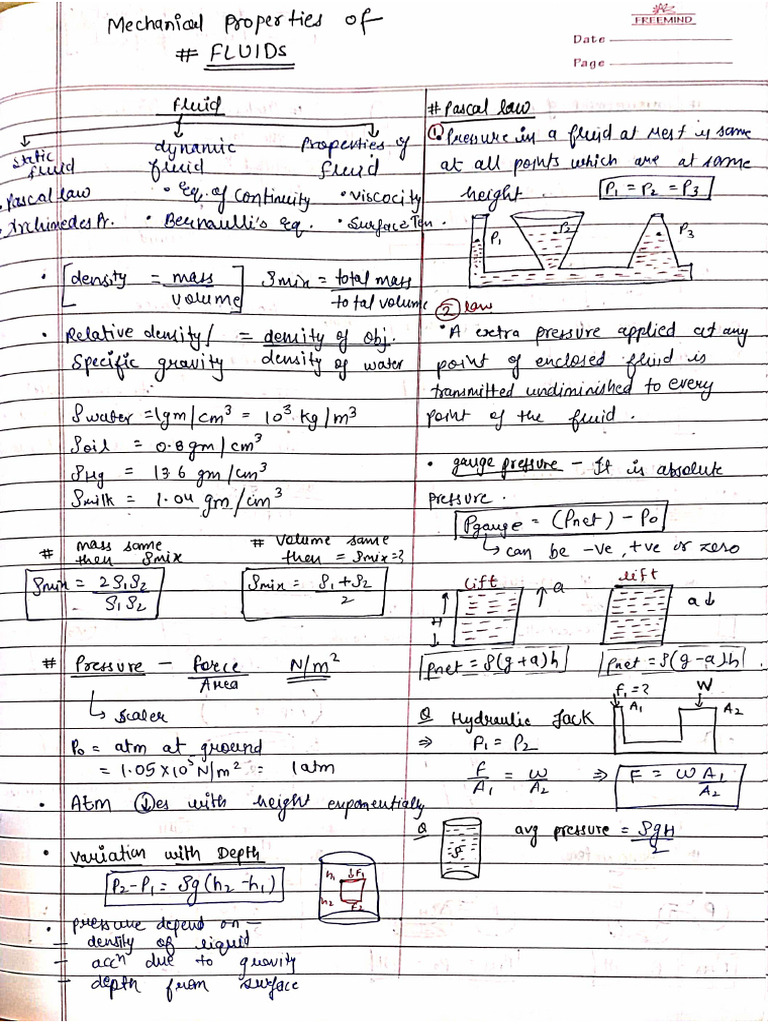 Mechanical Properties of
# FLUIDS
FREEMIND
Date
Page
Fluid
static fluid
dynamic fluid
Properties of fluid
. Pascal law
• eq. of continuity
• viscocity
. Archimedes Pr.
• Bernaulli's eq.
• Surface Ten.
• [density = mass / volume]
ρmix = total mass / total volume
• Relative density/ = density of obj.
Specific gravity density of water
ρwater = 1gm/cm³ = 10³ kg/m³
ρoil = 0.8gm/cm³
ρHg = 13.6 gm/cm³
ρmilk = 1.04 gm/cm³
# mass same
then ρmix
ρmix = 2ρ1ρ2 / ρ1ρ2
# volume same
then = ρmix=?
ρmix = ρ1+ρ2 / 2
# Pressure - force / Area N/m²
↳ scaler
P0 = atm at ground
= 1.05×10⁵N/m² = 1atm
• Atm ↓es with height exponentially
• variation with Depth
P2-P1 = ρg(h2-h1)
h1 ↓F1
h2 F2
• pressure depend on —
- density of liquid
- accⁿ due to gravity
- depth from surface
# Pascal law
① Pressure in a fluid at rest is same
at all points which are at same
height. P1 = P2 = P3
P1 P2 P3
② law
• A extra pressure applied at any
point of enclosed fluid is
transmitted undiminished to every
point of the fluid.
• gauge pressure - It is absolute
pressure.
Pgauge = (Pnet) - P0
↳ can be -ve, +ve or zero
lift ↑ a
H
lift
a ↓
Pnet = ρ(g+a)h
Pnet = ρ(g-a)h.
Q Hydraulic Jack
F1=? W
A1 A2
⇒ P1 = P2
F / A1 = W / A2 ⇒ F = W A1 / A2
Q avg pressure = ρgH / 2
ρ